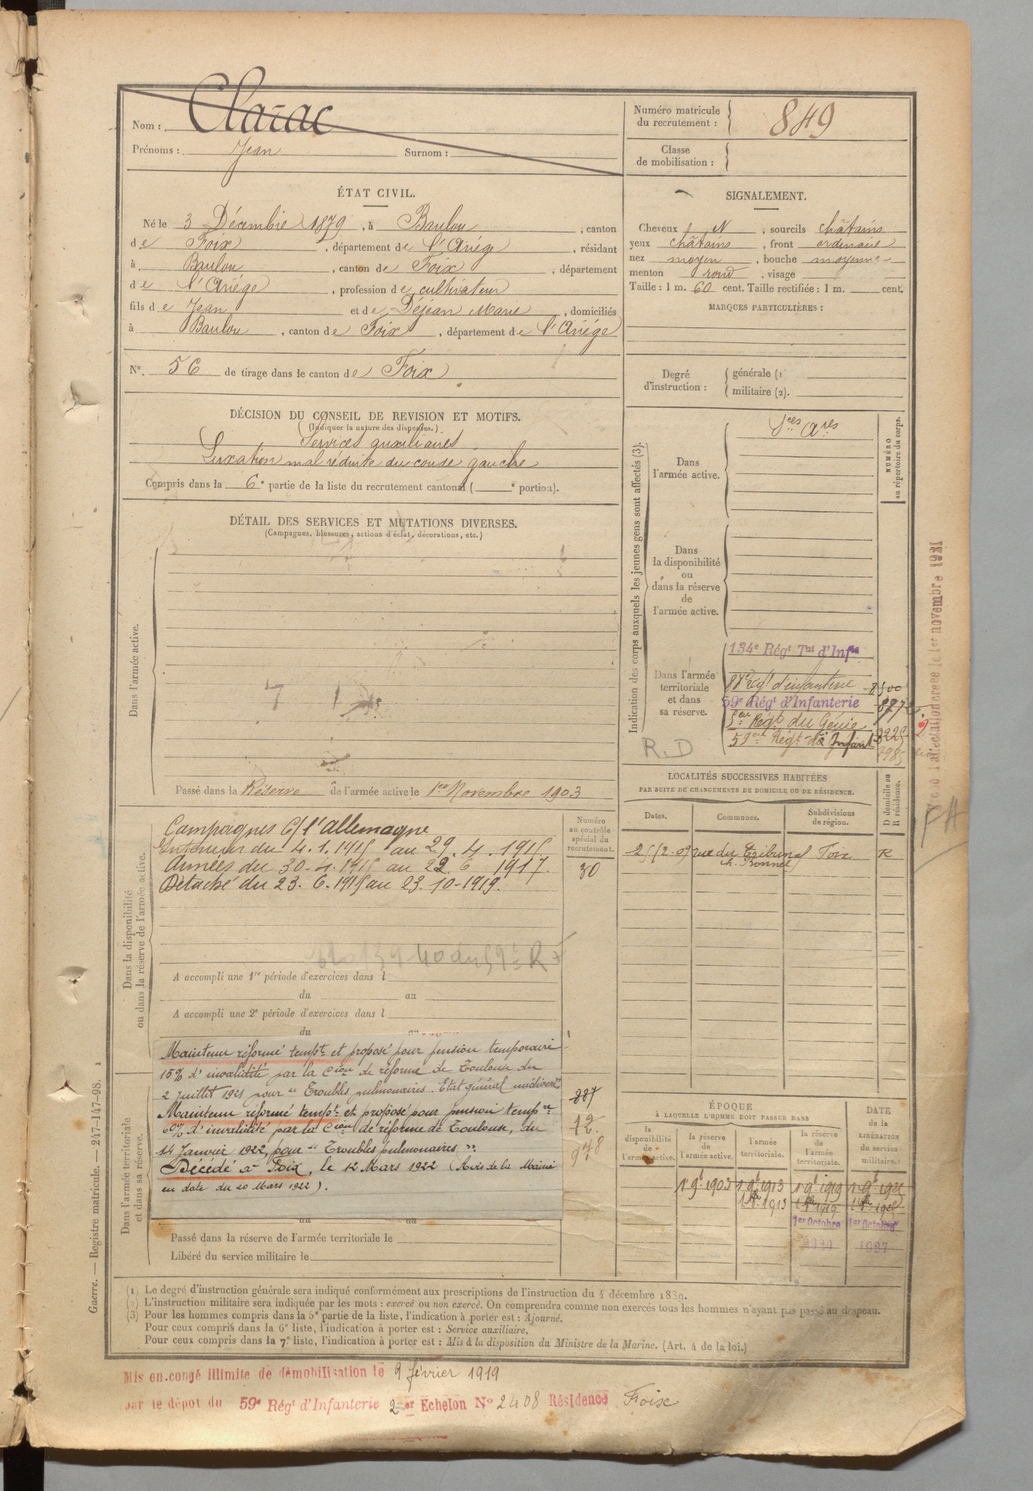 Nom : Clarac
Prénoms : Jean Surnom :
Numéro matricule du recrutement : 849
Classe de mobilisation :
ÉTAT CIVIL.
Né le 3 Décembre 1879, à Baulou, canton
de Foix, département de l'Ariège, résidant
à Baulou, canton de Foix, département
de l'Ariège, profession de cultivateur
fils de Jean et de Déjean Marie, domiciliés
à Baulou, canton de Foix, département de l'Ariège
N°. 56 de tirage dans le canton de Foix
SIGNALEMENT.
Cheveux N, sourcils châtains
yeux châtains, front ordinaire
nez moyen, bouche moyenne
menton rond, visage
Taille : 1 m. 60 cent. Taille rectifiée : 1 m. cent.
MARQUES PARTICULIÈRES :
Degré d'instruction : générale (1
militaire (2).
DÉCISION DU CONSEIL DE REVISION ET MOTIFS.
(Indiquer la nature des dispenses.)
Services auxiliaires
Luxation mal réduite du coude gauche
Compris dans la 6e partie de la liste du recrutement cantonal ( e portion).
DÉTAIL DES SERVICES ET MUTATIONS DIVERSES.
(Campagnes, blessures, actions d'éclat, décorations, etc.)
Dans l'armée active.
Passé dans la Réserve de l'armée active le 1er Novembre 1903
Indication des corps auxquels les jeunes gens sont affectés (3).
NUMÉRO au répertoire du corps.
Dans l'armée active.
Sces Ares
Dans la disponibilité ou dans la réserve de l'armée active.
Dans l'armée territoriale et dans sa réserve.
134e Régt Tal d'Infie
88e Régt d'infanterie
59e Régt d'Infanterie
Régt du Génie
59e Régt d'Infant
R.D
LOCALITÉS SUCCESSIVES HABITÉES
PAR SUITE DE CHANGEMENTS DE DOMICILE OU DE RÉSIDENCE.
Dates. Communes. Subdivisions de région. D domicile ou R résidence.
rue du Tribunal Foix R
Dans la disponibilité ou dans la réserve de l'armée active.
Numéro au contrôle spécial du recrutement.
30
Campagnes C/ l'Allemagne
Intérieur du 4.1.1915 au 29.4.1915
Armées du 30-4-1915 au 22.6.1917.
Détaché du 23.6.1917 au 23.10-1919.
A accompli une 1re période d'exercices dans l
du au
A accompli une 2e période d'exercices dans l
du
Dans l'armée territoriale et dans sa réserve.
Maintenu réformé tempre et proposé pour pension temporaire
15% d'invalidité par la Cion de réforme de Toulouse du
2 juillet 1921 pour "Troubles pulmonaires. Etat général médiocre"
Maintenu réformé tempre et proposé pour pension tempre
60% d'invalidité par la Cion de réforme de Toulouse, du
14 Janvier 1922, pour "Troubles pulmonaires".
Décédé à Foix, le 12 Mars 1922 (Avis de la Mairie
en date du 20 Mars 1922).
887
12.
948
Passé dans la réserve de l'armée territoriale le
Libéré du service militaire le
ÉPOQUE
À LAQUELLE L'HOMME DOIT PASSER DANS
la disponibilité de l'armée active.
la réserve de l'armée active.
l'armée territoriale.
la réserve de l'armée territoriale.
DATE de la LIBÉRATION du service militaire.
1 9bre 1903 1 9bre 1913 1 9bre 1919
1er Octobre 1er Octobre
1927
(1) Le degré d'instruction générale sera indiqué conformément aux prescriptions de l'instruction du 4 décembre 1889.
(2) L'instruction militaire sera indiquée par les mots : exercé ou non exercé. On comprendra comme non exercés tous les hommes n'ayant pas passé au drapeau.
(3) Pour les hommes compris dans la 5e partie de la liste, l'indication à porter est : Ajourné.
Pour ceux compris dans la 6e liste, l'indication à porter est : Service auxiliaire.
Pour ceux compris dans la 7e liste, l'indication à porter est : Mis à la disposition du Ministre de la Marine. (Art. 4 de la loi.)
Mis en congé illimité de démobilisation le 9 février 1919
par le dépôt du 59e Régt d'Infanterie 2er Echelon N° 2408 Résidence Foix
Guerre. — Registre matricule. — 247-147-98. 1